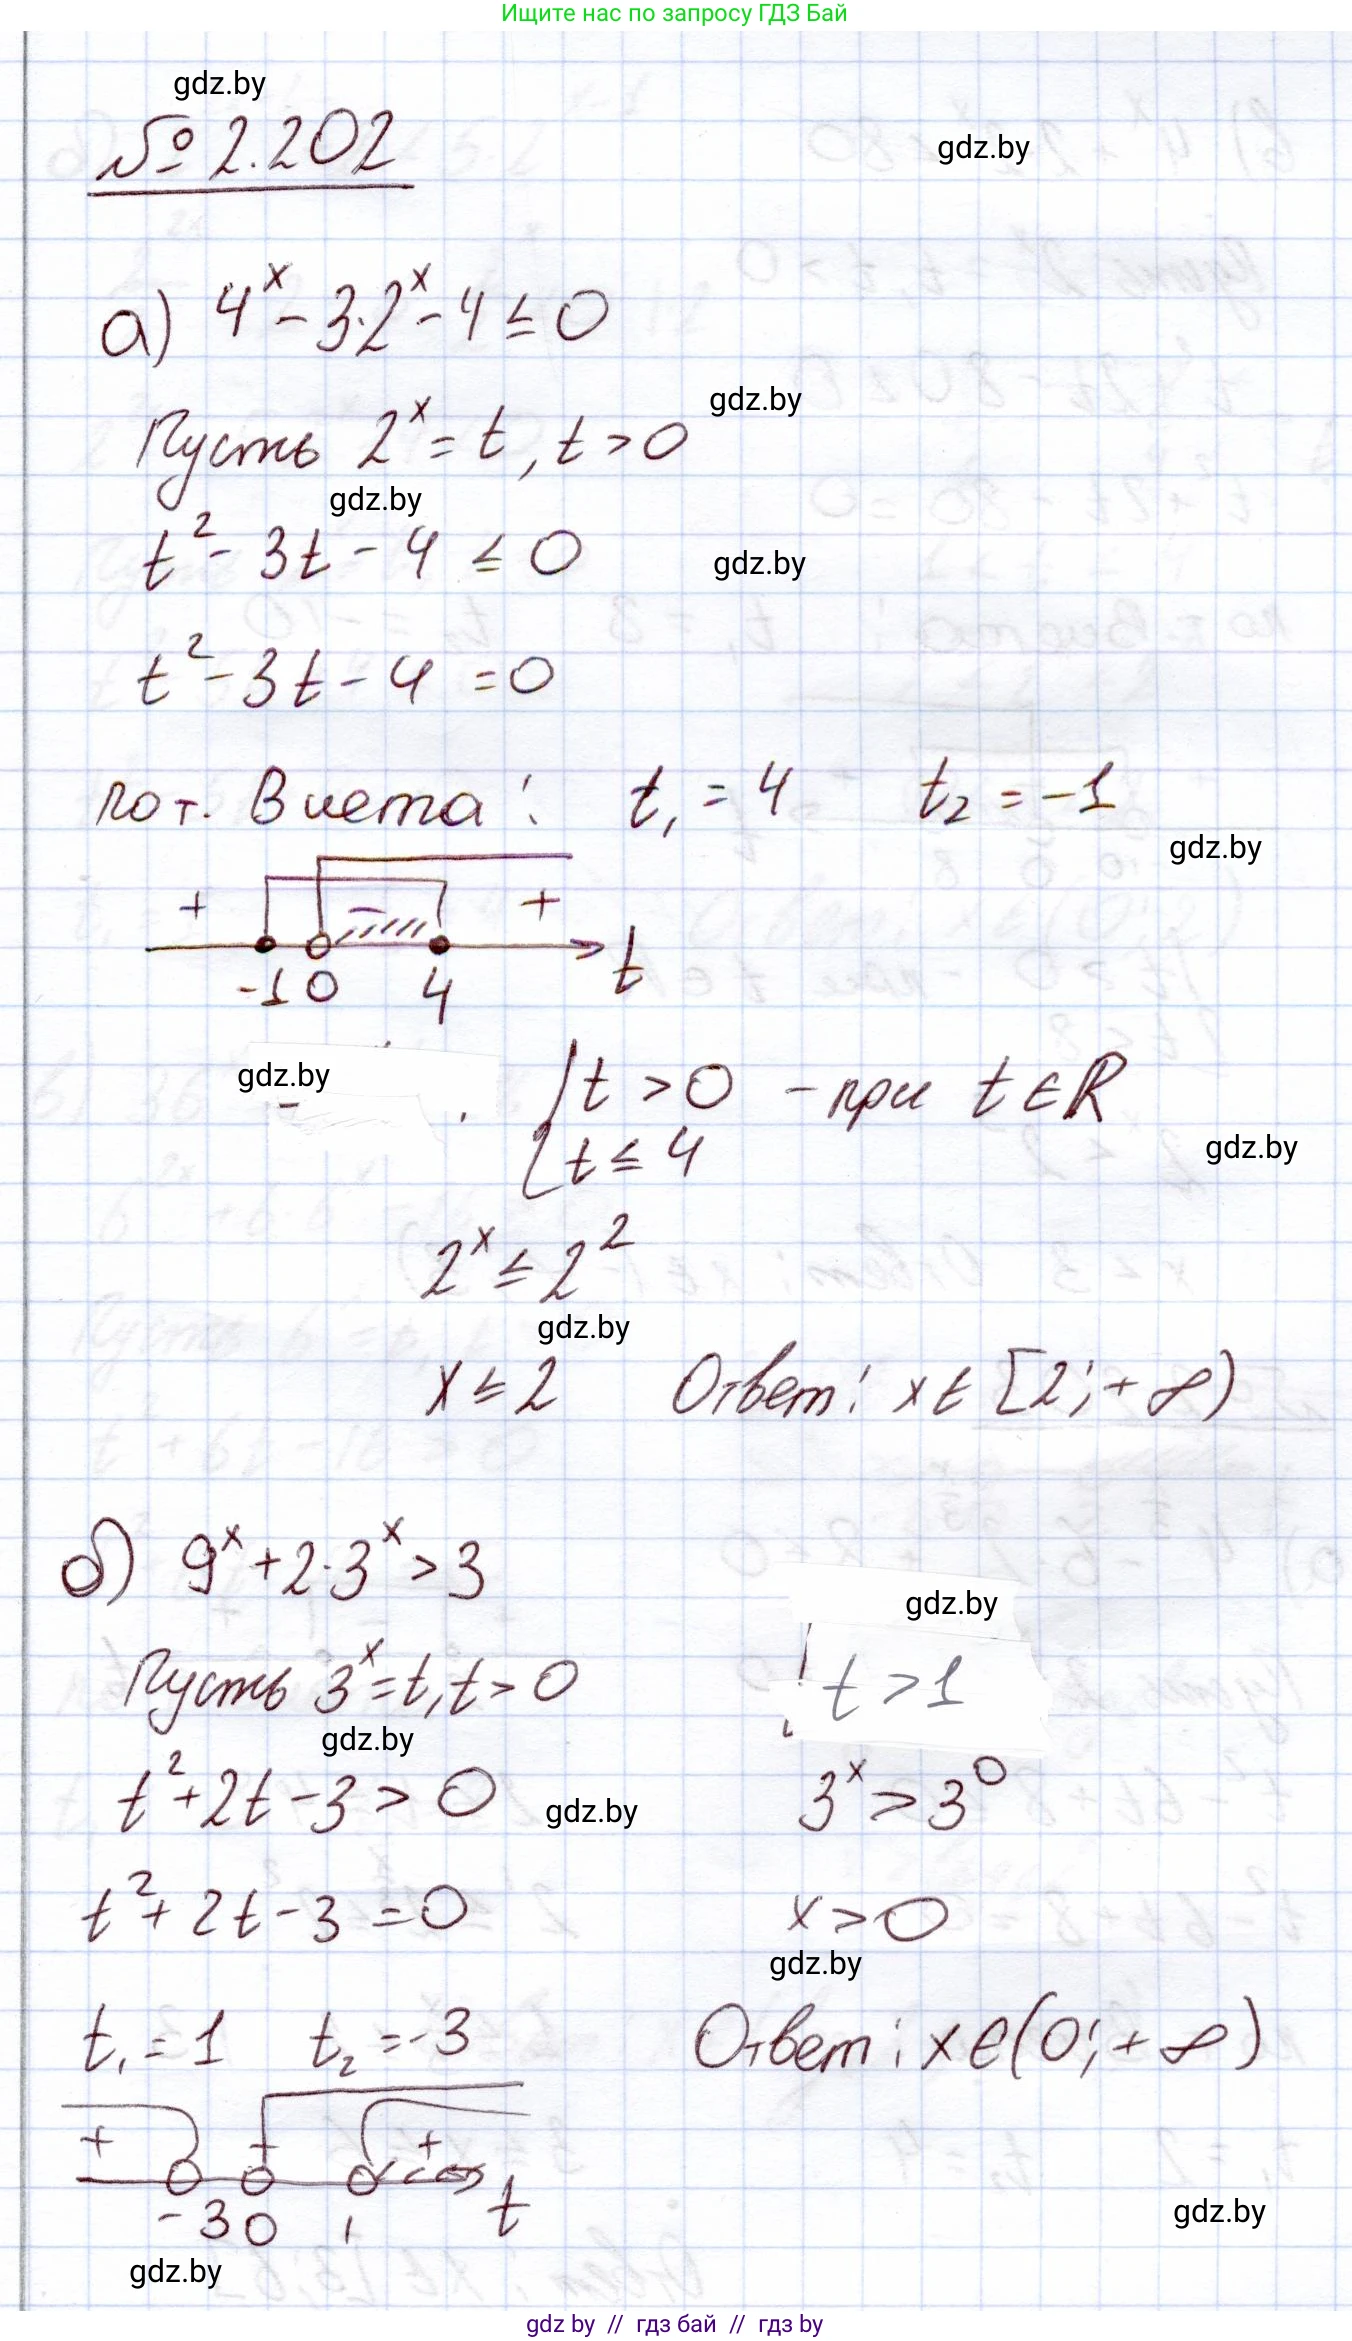 Ищите нас по запросу ГДЗ Бай
gdz.by
№ 2.202
gdz.by
а) 4ˣ - 3·2ˣ - 4 ≤ 0
gdz.by
Пусть 2ˣ = t, t > 0
gdz.by
t² - 3t - 4 ≤ 0
gdz.by
t² - 3t - 4 = 0
по т. Виета: t₁ = 4 t₂ = -1
gdz.by
+ - +
-1 0 4 t
gdz.by
{ t > 0 - при t ∈ R
t ≤ 4
gdz.by
2ˣ ≤ 2²
gdz.by
x ≤ 2 Ответ: x ∈ [2; +∞)
б) 9ˣ + 2·3ˣ > 3
Пусть 3ˣ = t, t > 0
gdz.by
t² + 2t - 3 > 0
gdz.by
t² + 2t - 3 = 0
t₁ = 1 t₂ = -3
+ - +
-3 0 1 t
gdz.by
gdz.by
t > 1
3ˣ > 3⁰
x > 0
gdz.by
Ответ: x ∈ (0; +∞)
gdz.by
gdz by // гдз бай // гдз by